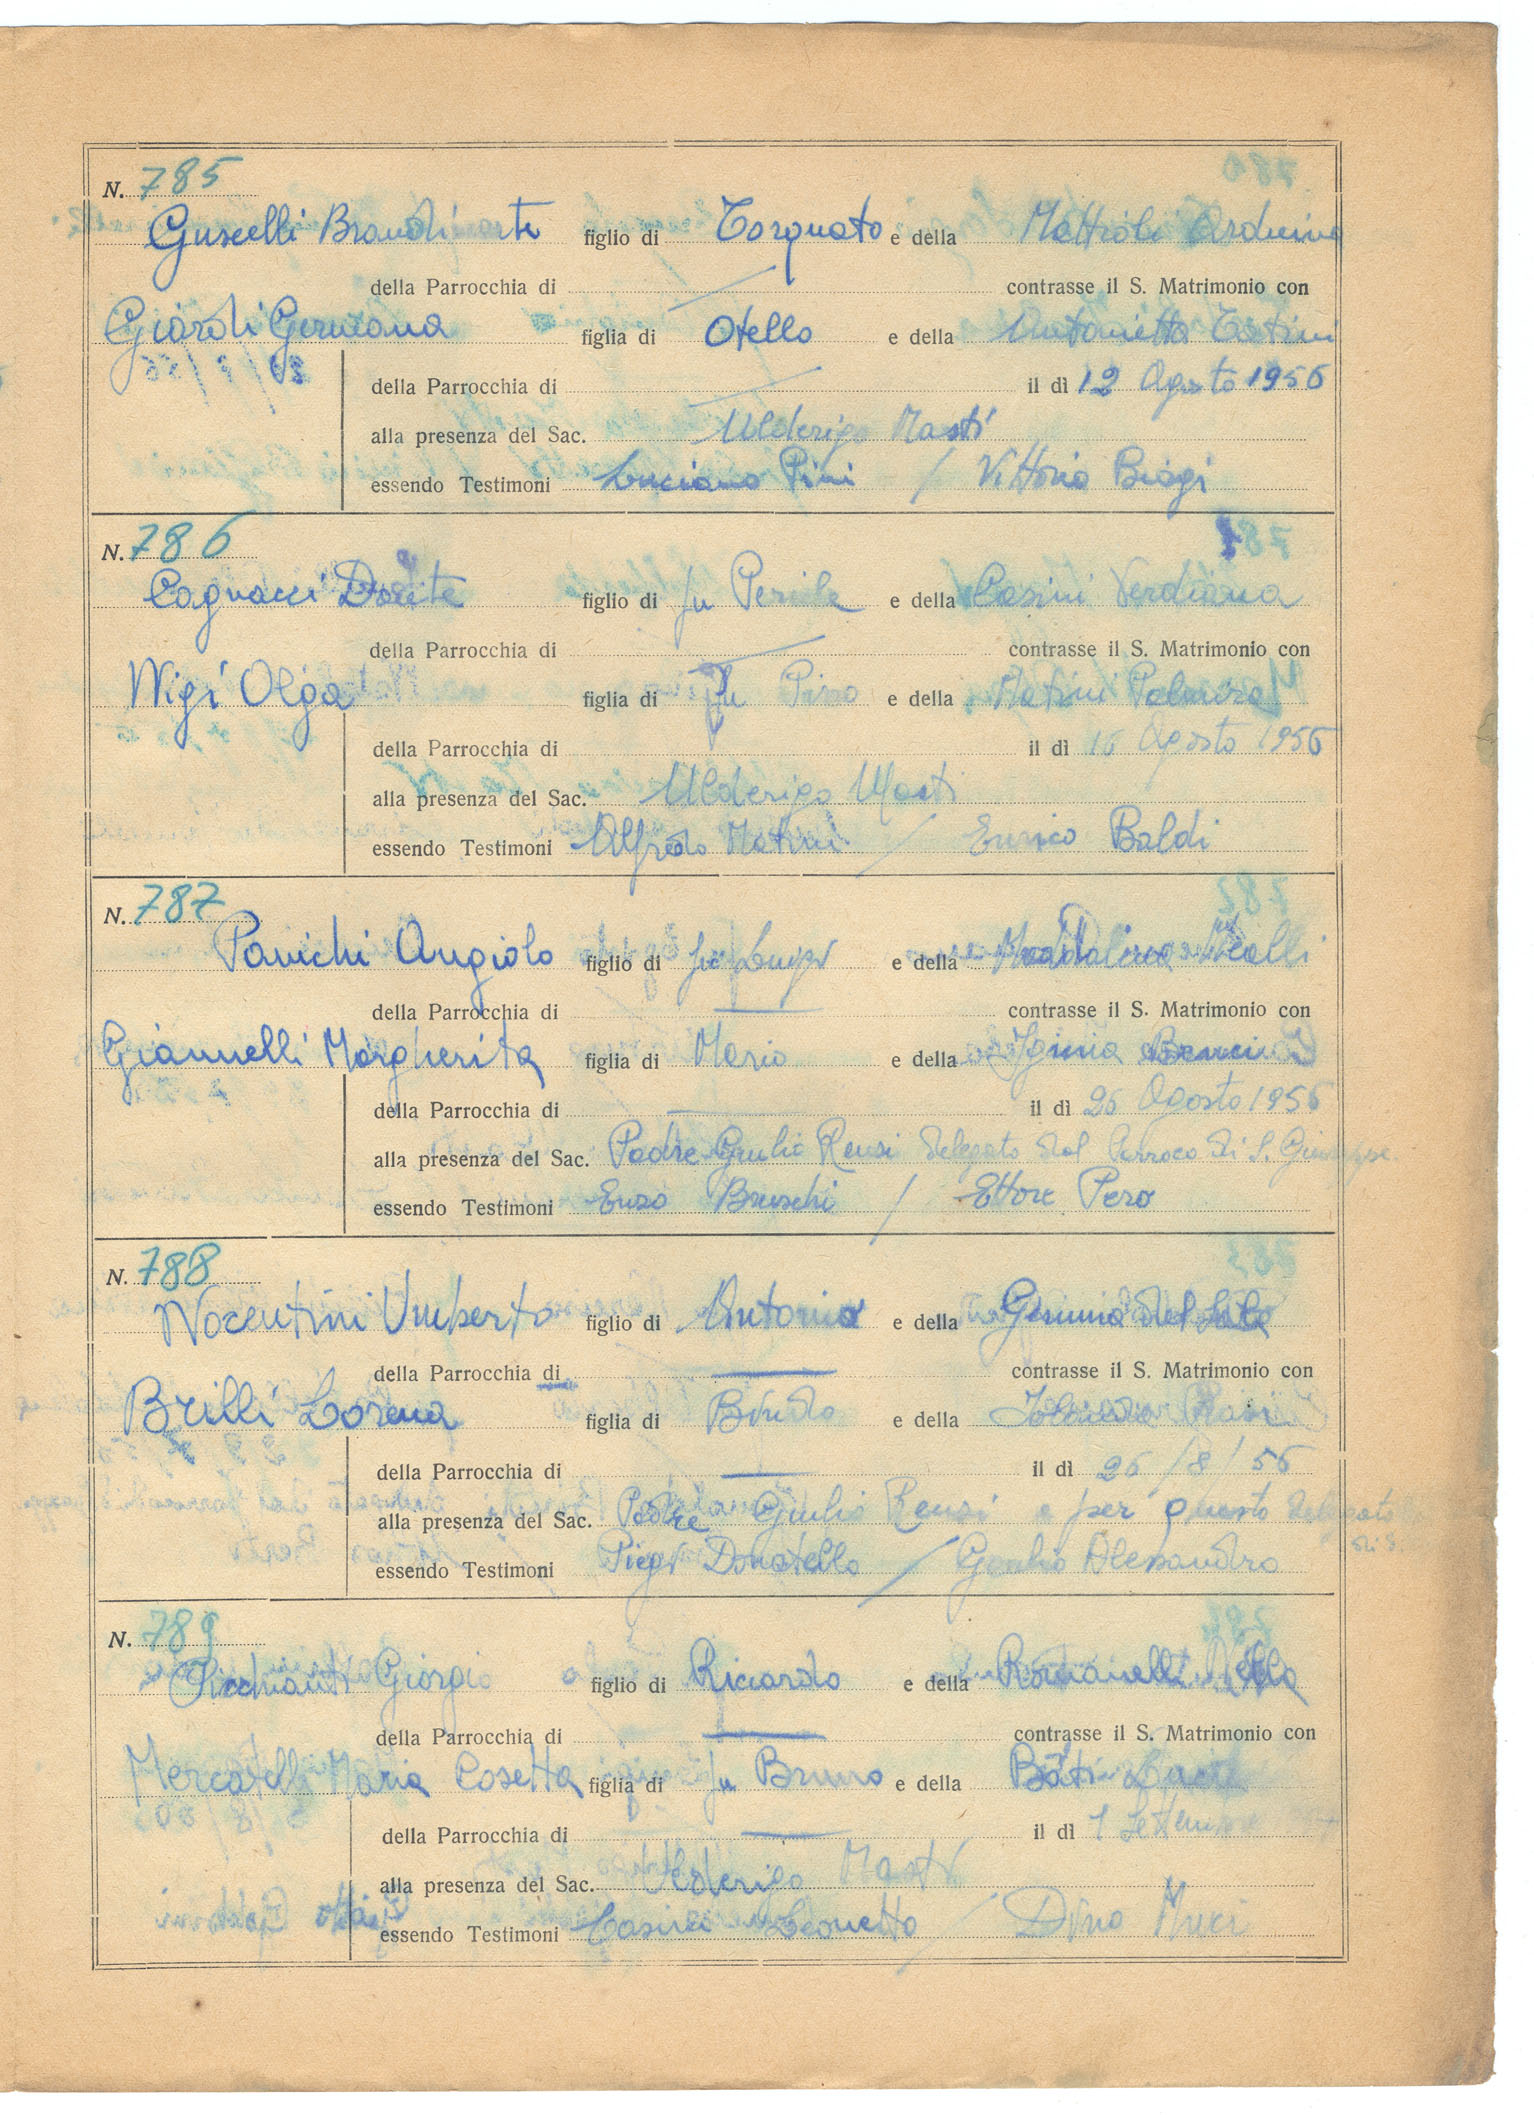 N. 785
Guscelli Brandimarte figlio di Torquato e della Mattioli Arduina
della Parrocchia di contrasse il S. Matrimonio con
Giardi Germana figlia di Otello e della Antonietta Tatini
della Parrocchia di il dì 12 Agosto 1956
alla presenza del Sac. Ulderigo Masti
essendo Testimoni Luciano Pini / Vittorio Biagi
N. 786
Cagnacci Dante figlio di fu Pericle e della Casini Verdiana
della Parrocchia di contrasse il S. Matrimonio con
Nigi Olga figlia di fu Pino e della Matini Palmira
della Parrocchia di il dì 16 Agosto 1956
alla presenza del Sac. Ulderigo Masti
essendo Testimoni Alfredo Matini / Enrico Baldi
N. 787
Panichi Angiolo figlio di fu Luigi e della Maddalena Mealli
della Parrocchia di contrasse il S. Matrimonio con
Giannelli Margherita figlia di Mario e della Iginia
della Parrocchia di il dì 26 Agosto 1956
alla presenza del Sac. Padre Giulio Rensi delegato dal Parroco di S. Giuseppe
essendo Testimoni Enzo Bruschi / Ettore Pero
N. 788
Nocentini Umberto figlio di Antonio e della Gemma del
della Parrocchia di contrasse il S. Matrimonio con
Brilli Lorena figlia di Bindo e della Iolanda
della Parrocchia di il dì 26/8/56
alla presenza del Sac. Padre Giulio Rensi e per questo delegato
di S.
essendo Testimoni Pieri Donatello / Giulio Alessandro
N. 789
Giorgio figlio di Riccardo e della Romanelli Nella
della Parrocchia di contrasse il S. Matrimonio con
Mercatelli Maria Cosetta figlia di fu Bruno e della
della Parrocchia di il dì 1 Settembre
alla presenza del Sac. Ulderigo Masti
essendo Testimoni Casini Leonetto / Dino Muci